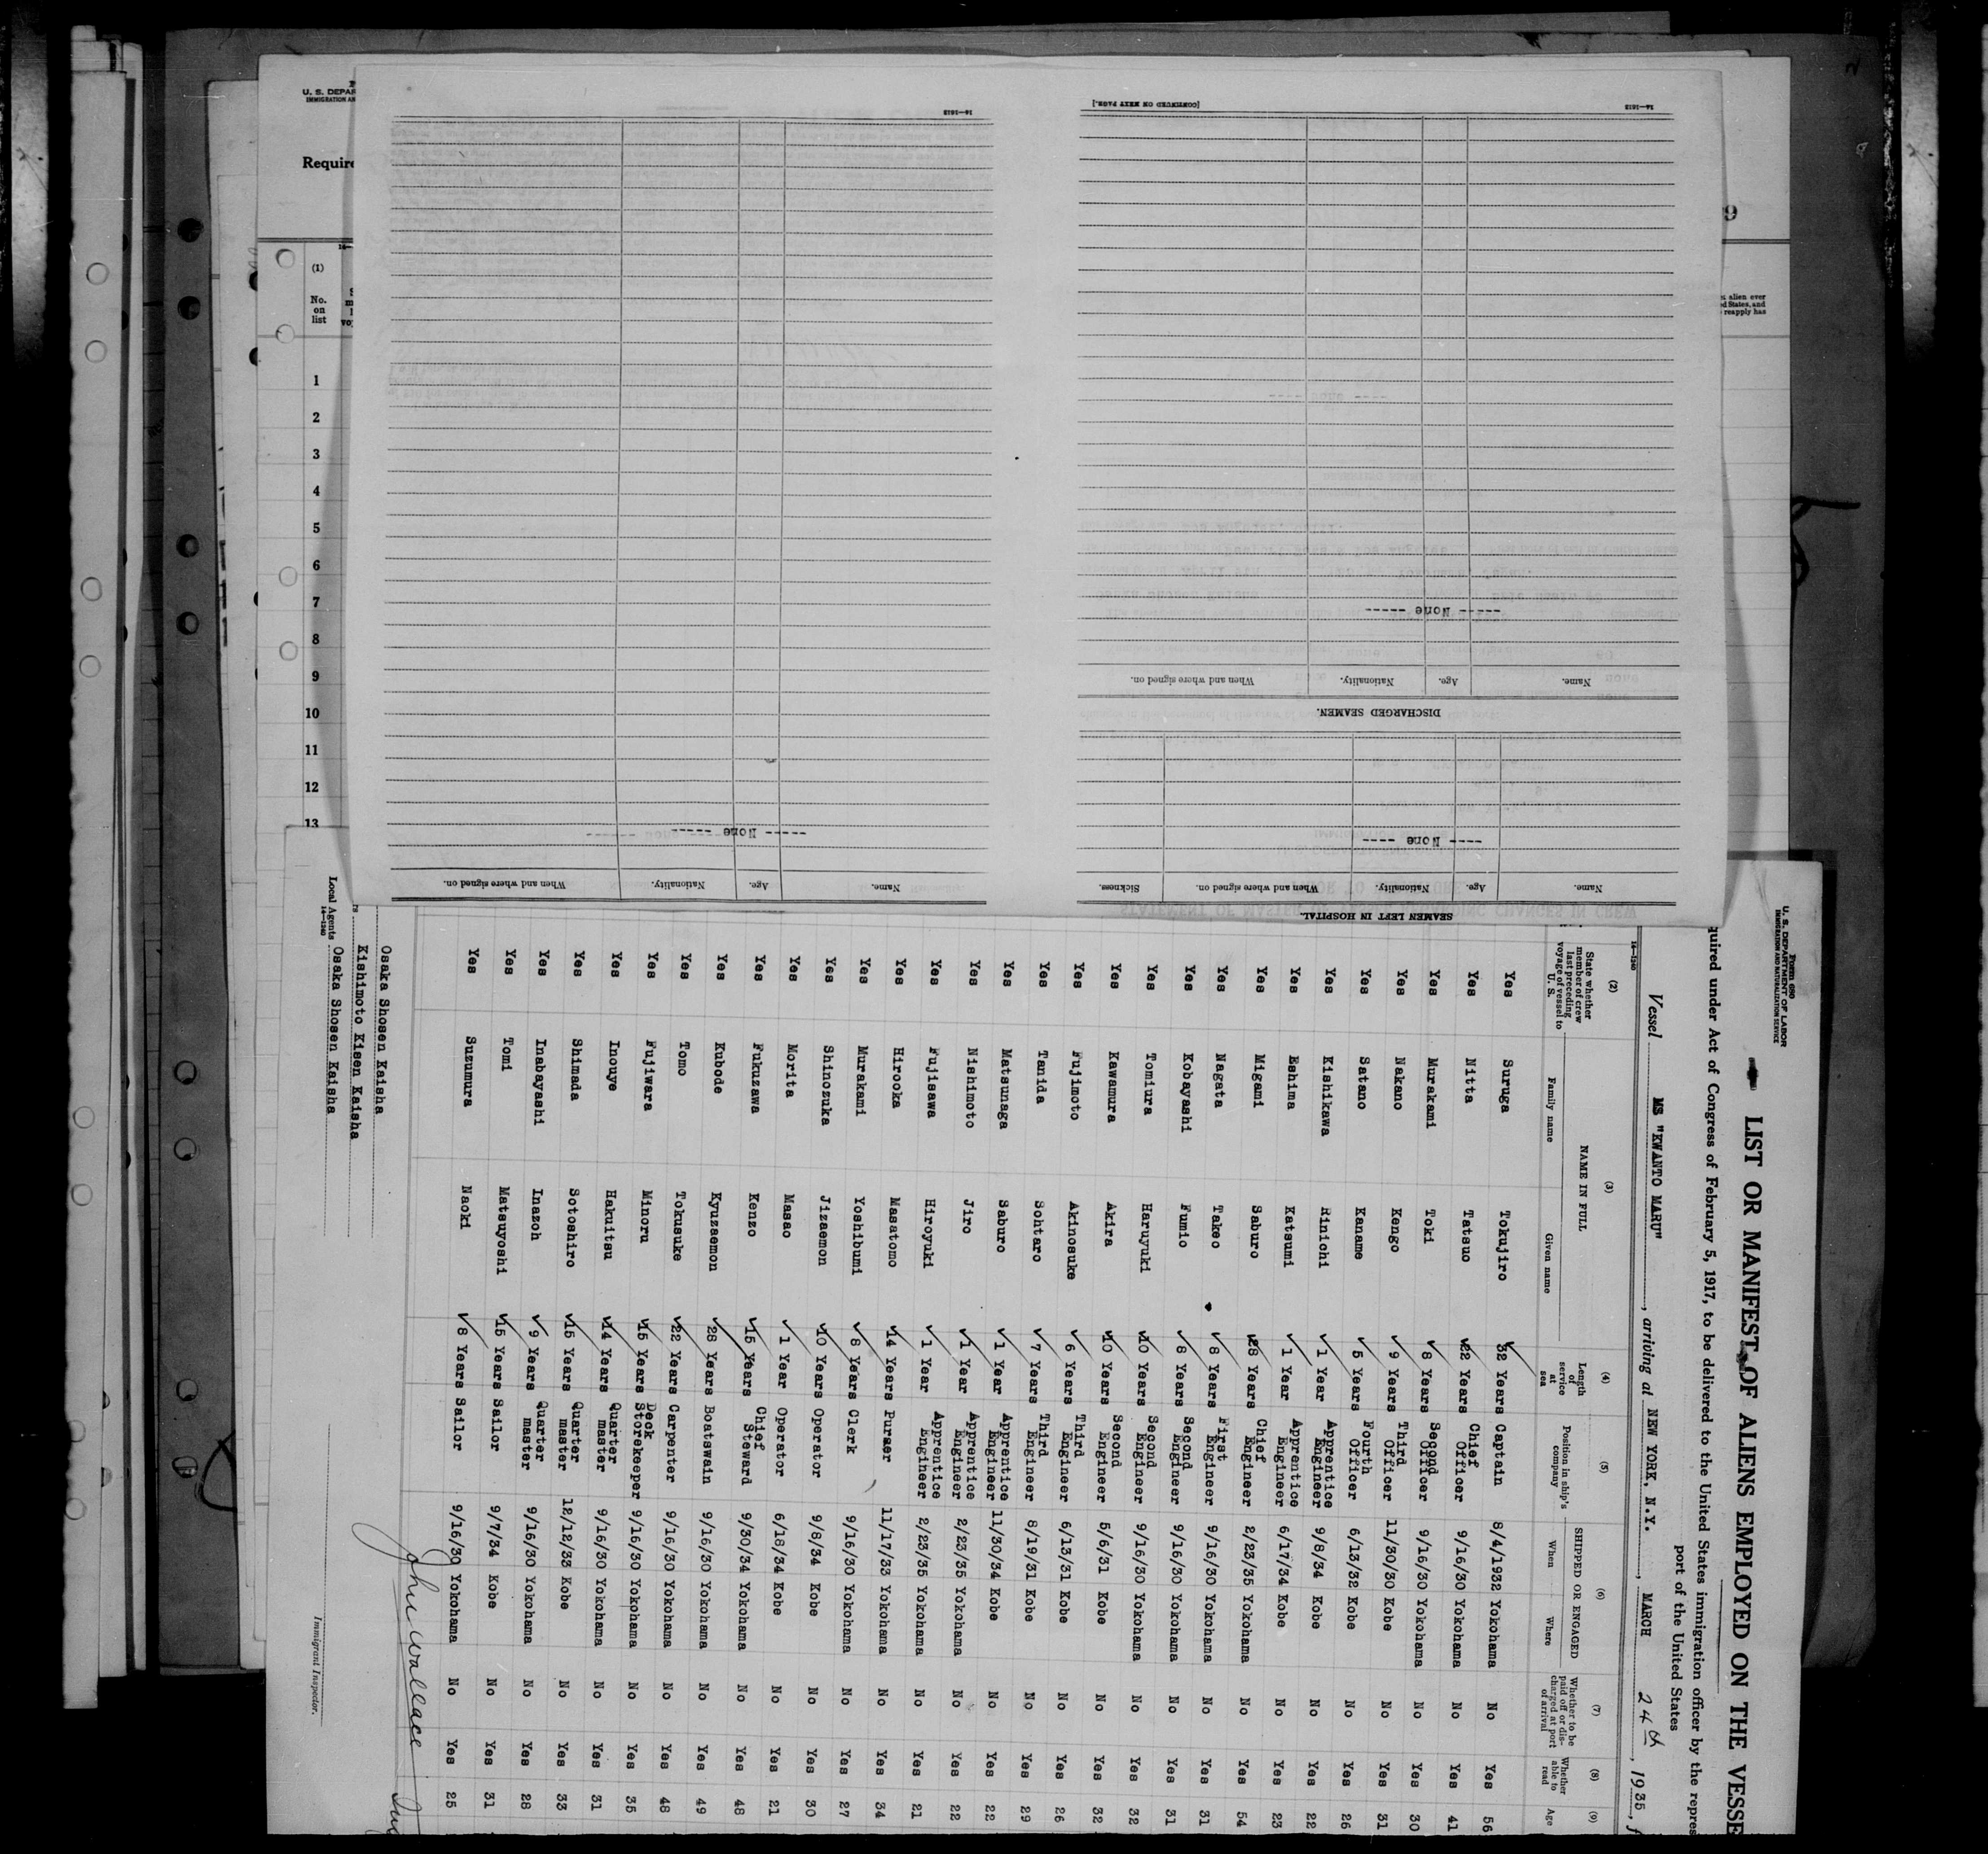 U. S. DEPAR
IMMIGRATION AN
Require
(1)
No.
on
list
1
2
3
4
5
6
7
8
9
10
11
12
13
9
alien ever
ed States, and
reapply has
14—1613
[CONTINUED ON NEXT PAGE.]
14—1613
SEAMEN LEFT IN HOSPITAL.
Name. Age. Nationality. When and where signed on. Sickness.
---- None ----
DISCHARGED SEAMEN.
Name. Age. Nationality. When and where signed on.
----- None -----
Name. Age. Nationality. When and where signed on.
----- None -----
Form 680
U. S. DEPARTMENT OF LABOR
IMMIGRATION AND NATURALIZATION SERVICE
LIST OR MANIFEST OF ALIENS EMPLOYED ON THE VESSE
quired under Act of Congress of February 5, 1917, to be delivered to the United States immigration officer by the repres
port of the United States
Vessel MS "KWANTO MARU", arriving at NEW YORK, N.Y., MARCH 24th, 1935, f
14—1240
(2) (3) (4) (5) (6) (7) (8) (9)
State whether member of crew last preceding voyage of vessel to U. S.
NAME IN FULL
Family name Given name
Length of service at sea
Position in ship's company
SHIPPED OR ENGAGED
When Where
Whether to be paid off or discharged at port of arrival
Whether able to read
Age
Yes Suruga Tokujiro 32 Years Captain 8/4/1932 Yokohama No Yes 56
Yes Nitta Tatsuo 22 Years Chief Officer 9/16/30 Yokohama No Yes 41
Yes Murakami Toki 8 Years Second Officer 9/16/30 Yokohama No Yes 30
Yes Nakano Kengo 9 Years Third Officer 11/30/30 Kobe No Yes 31
Yes Satano Kaname 5 Years Fourth Officer 6/13/32 Kobe No Yes 26
Yes Kishikawa Rinichi 1 Year Apprentice Engineer 9/8/34 Kobe No Yes 22
Yes Eshima Katsumi 1 Year Apprentice Engineer 6/17/34 Kobe No Yes 23
Yes Migami Saburo 28 Years Chief Engineer 2/23/35 Yokohama No Yes 54
Yes Nagata Takeo 8 Years First Engineer 9/16/30 Yokohama No Yes 31
Yes Kobayashi Fumio 8 Years Second Engineer 9/16/30 Yokohama No Yes 31
Yes Tomiura Haruyuki 10 Years Second Engineer 9/16/30 Yokohama No Yes 32
Yes Kawamura Akira 10 Years Second Engineer 5/6/31 Kobe No Yes 32
Yes Fujimoto Akinosuke 6 Years Third Engineer 6/13/31 Kobe No Yes 26
Yes Tanida Sohtaro 7 Years Third Engineer 8/19/31 Kobe No Yes 29
Yes Matsunaga Saburo 1 Year Apprentice Engineer 11/30/34 Kobe No Yes 22
Yes Nishimoto Jiro 1 Year Apprentice Engineer 2/23/35 Yokohama No Yes 22
Yes Fujisawa Hiroyuki 1 Year Apprentice Engineer 2/23/35 Yokohama No Yes 21
Yes Hirooka Masatomo 14 Years Purser 11/17/33 Yokohama No Yes 34
Yes Murakami Yoshibumi 8 Years Clerk 9/16/30 Yokohama No Yes 27
Yes Shinozuka Jizaemon 10 Years Operator 9/8/34 Kobe No Yes 30
Yes Morita Masao 1 Year Operator 6/18/34 Kobe No Yes 21
Yes Fukuzawa Kenzo 15 Years Chief Steward 9/30/34 Yokohama No Yes 48
Yes Kubode Kyuzaemon 28 Years Boatswain 9/16/30 Yokohama No Yes 49
Yes Tomo Tokusuke 22 Years Carpenter 9/16/30 Yokohama No Yes 48
Yes Fujiwara Minoru 15 Years Deck Storekeeper 9/16/30 Yokohama No Yes 35
Yes Inouye Hakuitsu 14 Years Quarter master 9/16/30 Yokohama No Yes 31
Yes Shimada Sotoshiro 15 Years Quarter master 12/12/33 Kobe No Yes 33
Yes Inabayashi Inazoh 9 Years Quarter master 9/16/30 Yokohama No Yes 28
Yes Tomi Matsuyoshi 15 Years Sailor 9/7/34 Kobe No Yes 31
Yes Suzumura Naoki 8 Years Sailor 9/16/30 Yokohama No Yes 25
Osaka Shosen Kaisha
Kishimoto Kisen Kaisha
Local Agents Osaka Shosen Kaisha
14—1240
John Wallace
Immigrant Inspector.